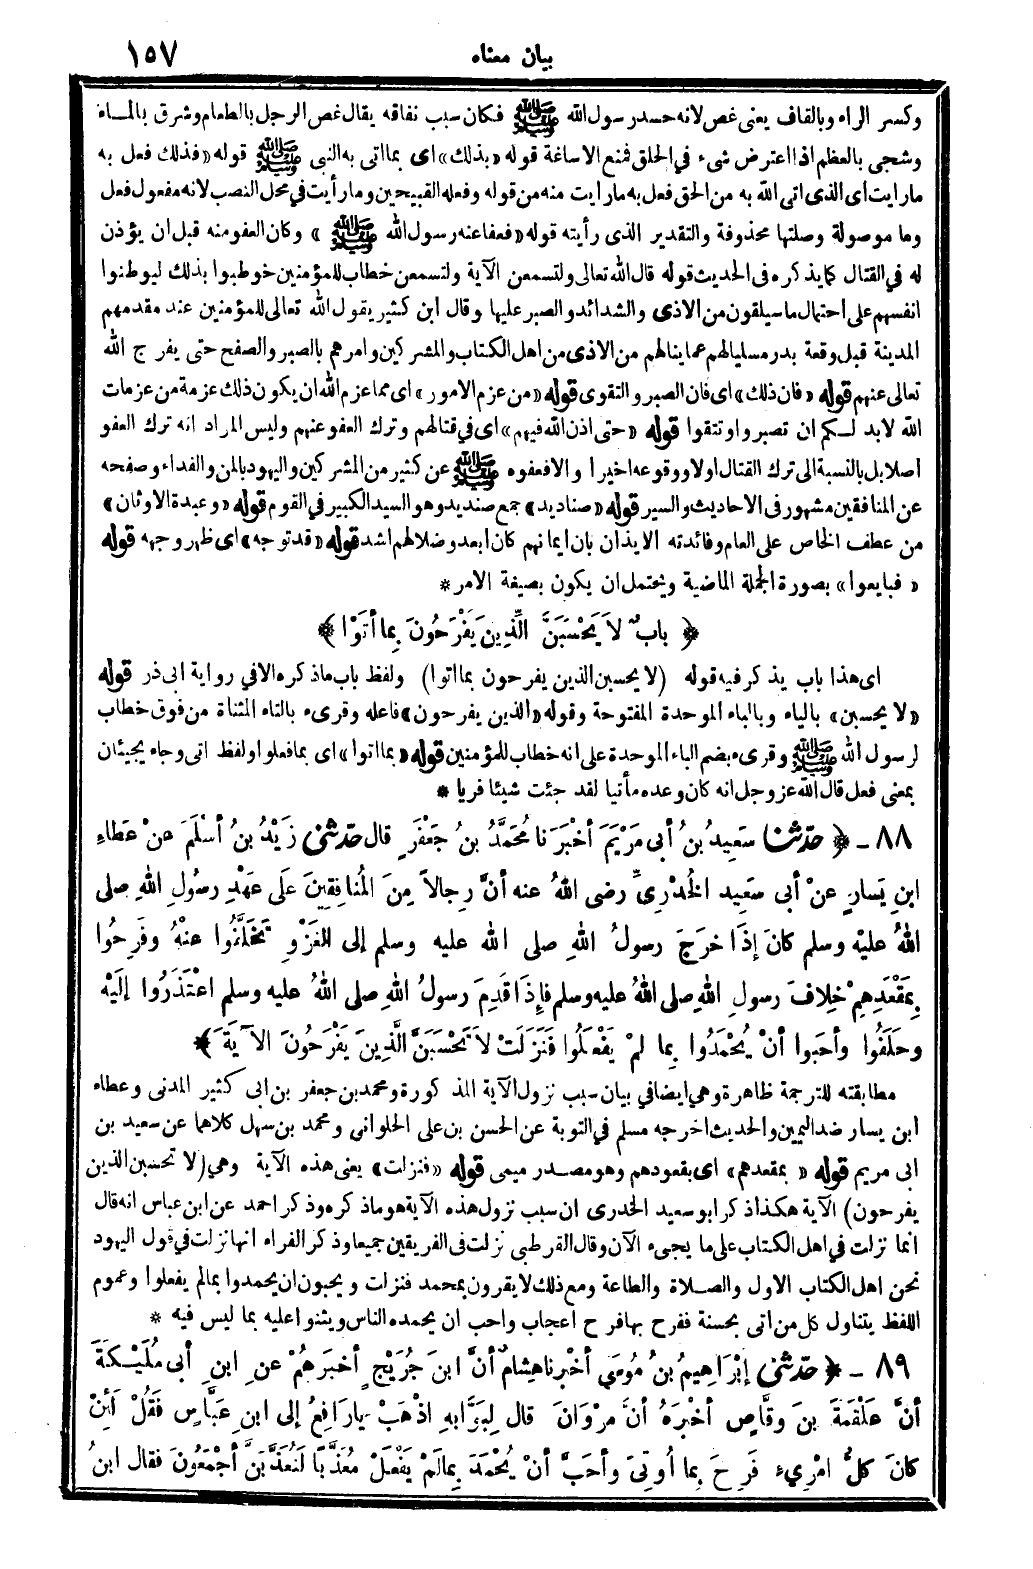 بيان معناه ١٥٧
وكسر الراء وبالقاف يعنى غص لانه حسد رسول الله ﷺ فكان سبب نفاقه يقال غص الرجل بالطعام وشرق بالماء
وشجى بالعظم اذا اعترض شىء في الحلق فمنع الاساغة قوله «بذلك» اى بما اتى به النبى ﷺ قوله «فذلك فعل به
ما رايت اى الذى اتى الله به من الحق فعل به ما رايت منه من قوله وفعله القبيحين وما رأيت في محل النصب لانه مفعول فعل
وما موصولة وصلتها محذوفة والتقدير الذى رأيته قوله «فعفا عنه رسول الله ﷺ» وكان العفو منه قبل ان يؤذن
له في القتال كما يذكره فى الحديث قوله قال الله تعالى ولتسمعن الآية ولتسمعن خطاب للمؤمنين خوطبوا بذلك ليوطنوا
انفسهم على احتمال ما سيلقون من الاذى والشدائد والصبر عليها وقال ابن كثير يقول الله تعالى للمؤمنين عند مقدمهم
المدينة قبل وقعة بدر مسليا لهم عما ينالهم من الاذى من اهل الكتاب والمشركين وامرهم بالصبر والصفح حتى يفرج الله
تعالى عنهم قوله «فان ذلك» اى فان الصبر والتقوى قوله «من عزم الامور» اى مما عزم الله ان يكون ذلك عزمة من عزمات
الله لا بد لكم ان تصبروا وتتقوا قوله «حتى اذن الله فيهم» اى في قتالهم وترك العفو عنهم وليس المراد انه ترك العفو
اصلا بل بالنسبة الى ترك القتال اولا ووقوعه اخيرا والا فعفوه ﷺ عن كثير من المشركين واليهود بالمن والفداء وصفحه
عن المنافقين مشهور فى الاحاديث والسير قوله «صناديد» جمع صنديد وهو السيد الكبير في القوم قوله «وعبدة الاوثان»
من عطف الخاص على العام وفائدته الايذان بان ايمانهم كان ابعد وضلالهم اشد قوله «قد توجه» اى ظهر وجهه قوله
«فبايعوا» بصورة الجملة الماضية ويحتمل ان يكون بصيغة الامر *
﴿ بابٌ لاَ يَحْسَبَنَّ الَّذِينَ يَفْرَحُونَ بِما أَتَوْا ﴾
اى هذا باب يذكر فيه قوله (لا يحسبن الذين يفرحون بما اتوا) ولفظ باب ما ذكره الا في رواية ابى ذر قوله
«لا يحسبن» بالياء وبالباء الموحدة المفتوحة وقوله «الذين يفرحون» فاعله وقرىء بالتاء المثناة من فوق خطاب
لرسول الله ﷺ وقرىء بضم الباء الموحدة على انه خطاب للمؤمنين قوله «بما اتوا» اى بما فعلوا ولفظ اتى وجاء يجيئان
بمعنى فعل قال الله عز وجل انه كان وعده مأتيا لقد جئت شيئا فريا *
٨٨ - ﴿ حدّثنا سَعِيدُ بنُ أبى مَرْيَمَ أخْبَرَنا مُحَمَّدُ بنُ جَعْفَرٍ قال حدّثنى زَيْدُ بنُ أسْلَمَ عنْ عَطاءِ
ابنِ يَسارٍ عنْ أبى سَعِيدٍ الخُدْرِىِّ رضى اللهُ عنه أنَّ رِجالاً مِنَ المُنافِقِينَ علَى عَهْدِ رسُولِ اللهِ صلى
اللهُ عليْه وسلم كانَ إذَا خرَجَ رسولُ اللهِ صلى الله عليه وسلم إلى الغَزْوِ تَخَلَّفُوا عنْهُ وفَرِحُوا
بِمَقْعَدِهِمْ خِلافَ رسولِ اللهِ صلى اللهُ عليْه وسلم فإذَا قَدِمَ رسولُ اللهِ صلى اللهُ عليه وسلم اعْتَذَرُوا إلَيْهِ
وحَلَفُوا وأحَبوا أنْ يُحْمَدُوا بِما لمْ يَفْعَلُوا فَنَزَلَتْ لاَ تَحْسَبَنَّ الَّذِينَ يَفْرَحُونَ الآيَةَ ﴾
مطابقته للترجمة ظاهرة وهي ايضا في بيان سبب نزول الآية المذكورة ومحمد بن جعفر بن ابى كثير المدنى وعطاء
ابن يسار ضد اليمين والحديث اخرجه مسلم في التوبة عن الحسن بن على الحلوانى ومحمد بن سهل كلاهما عن سعيد بن
ابى مريم قوله «بمقعدهم» اى بقعودهم وهو مصدر ميمى قوله «فنزلت» يعنى هذه الآية وهي (لا تحسبن الذين
يفرحون) الآية هكذا ذكر ابو سعيد الخدرى ان سبب نزول هذه الآية هو ما ذكره وذكر احمد عن ابن عباس انه قال
انما نزلت في اهل الكتاب على ما يجىء الآن وقال القرطبى نزلت فى الفريقين جميعا وذكر الفراء انها نزلت في قول اليهود
نحن اهل الكتاب الاول والصلاة والطاعة ومع ذلك لا يقرون بمحمد فنزلت ويحبون ان يحمدوا بما لم يفعلوا وعموم
اللفظ يتناول كل من اتى بحسنة ففرح بها فرح اعجاب واحب ان يحمده الناس ويثنوا عليه بما ليس فيه *
٨٩ - ﴿ حدّثنى إبْرَاهِيمُ بنُ مُوسَى أخْبرنا هِشامٌ أنَّ ابنَ جُرَيْجٍ أخبَرَهُمْ عنِ ابنِ أبى مُلَيْكَةَ
أنَّ علْقَمَةَ بنَ وقَّاصٍ أخْبَرَهُ أنَّ مَرْوَانَ قال لِبَوَّابِهِ اذْهَبْ يا رافِعُ إلى ابنِ عبَّاسٍ فَقُلْ لَئِنْ
كانَ كلُّ امْرِىءٍ فَرِحَ بِما أُوتِىَ وأحَبَّ أنْ يُحْمَدَ بِما لَمْ يَفْعَلْ مُعَذَّبًا لَنُعَذَّبَنَّ أجْمَعُونَ فقال ابنُ